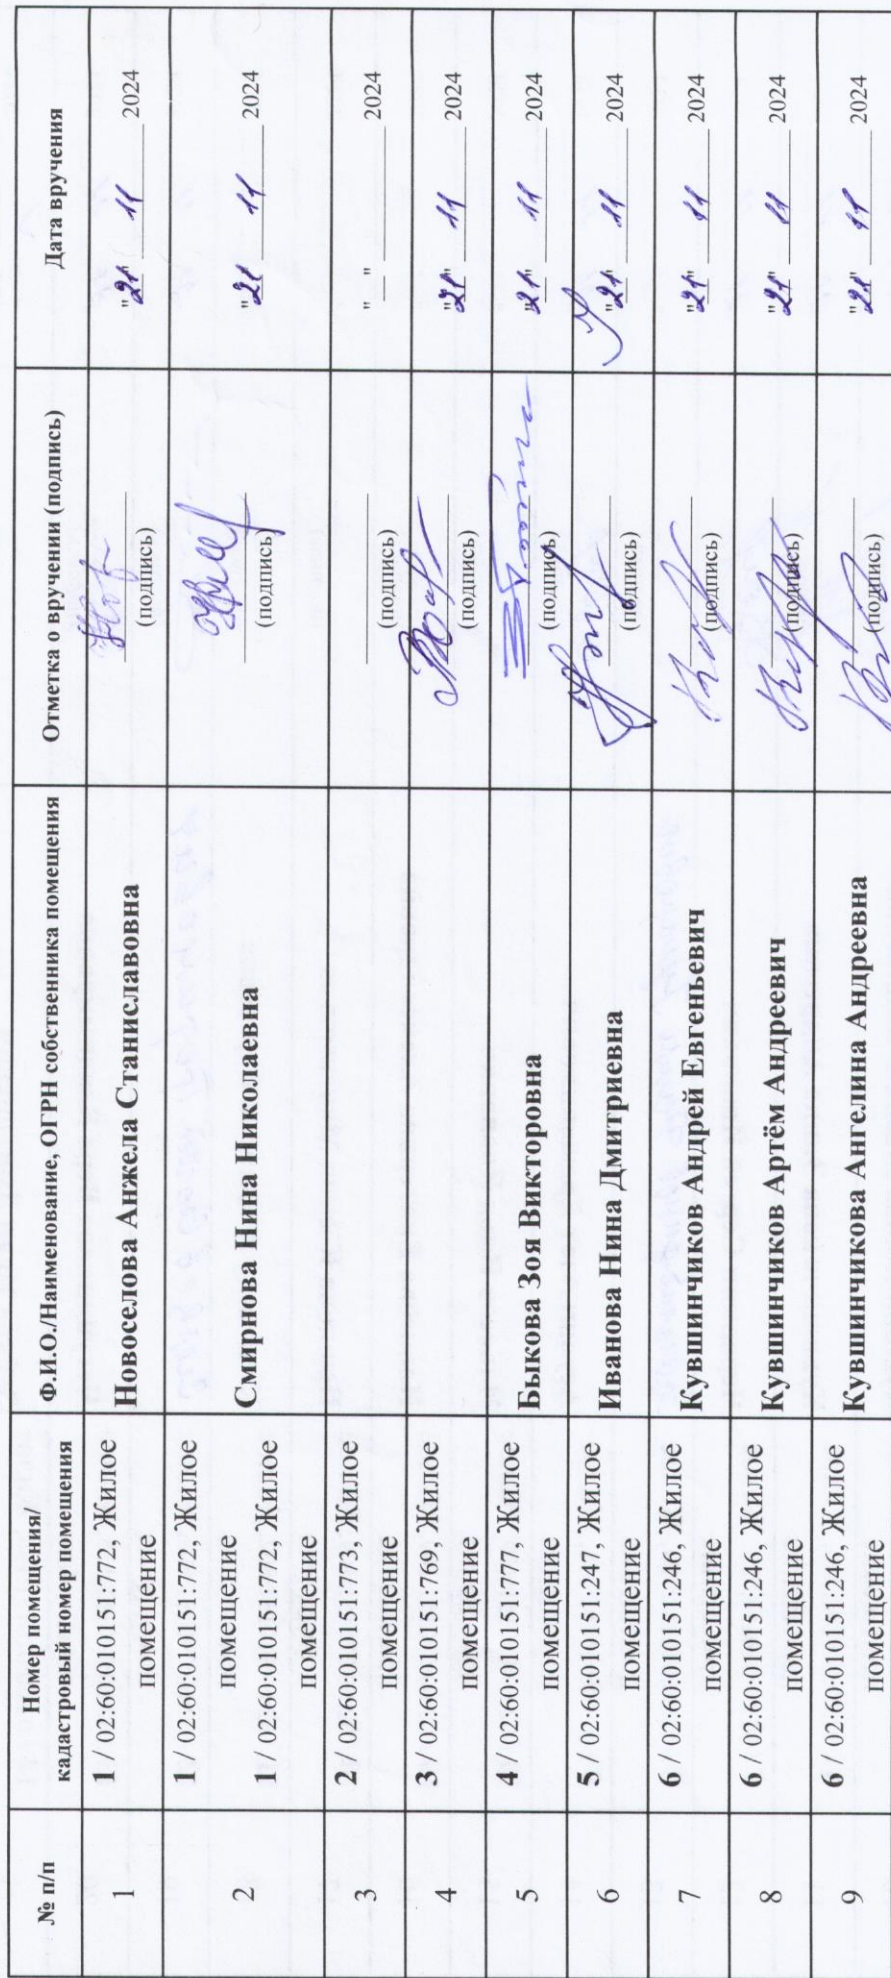 № п/п
Номер помещения/
кадастровый номер помещения
Ф.И.О./Наименование, ОГРН собственника помещения
Отметка о вручении (подпись)
Дата вручения
1
1 / 02:60:010151:772, Жилое
помещение
Новоселова Анжела Станиславовна
(подпись)
"21" 11 2024
2
1 / 02:60:010151:772, Жилое
помещение
1 / 02:60:010151:772, Жилое
помещение
Смирнова Нина Николаевна
(подпись)
"21" 11 2024
3
2 / 02:60:010151:773, Жилое
помещение
(подпись)
"__" ______ 2024
4
3 / 02:60:010151:769, Жилое
помещение
(подпись)
"21" 11 2024
5
4 / 02:60:010151:777, Жилое
помещение
Быкова Зоя Викторовна
(подпись)
"21" 11 2024
6
5 / 02:60:010151:247, Жилое
помещение
Иванова Нина Дмитриевна
(подпись)
"21" 11 2024
7
6 / 02:60:010151:246, Жилое
помещение
Кувшинчиков Андрей Евгеньевич
(подпись)
"21" 11 2024
8
6 / 02:60:010151:246, Жилое
помещение
Кувшинчиков Артём Андреевич
(подпись)
"21" 11 2024
9
6 / 02:60:010151:246, Жилое
помещение
Кувшинчикова Ангелина Андреевна
(подпись)
"21" 11 2024